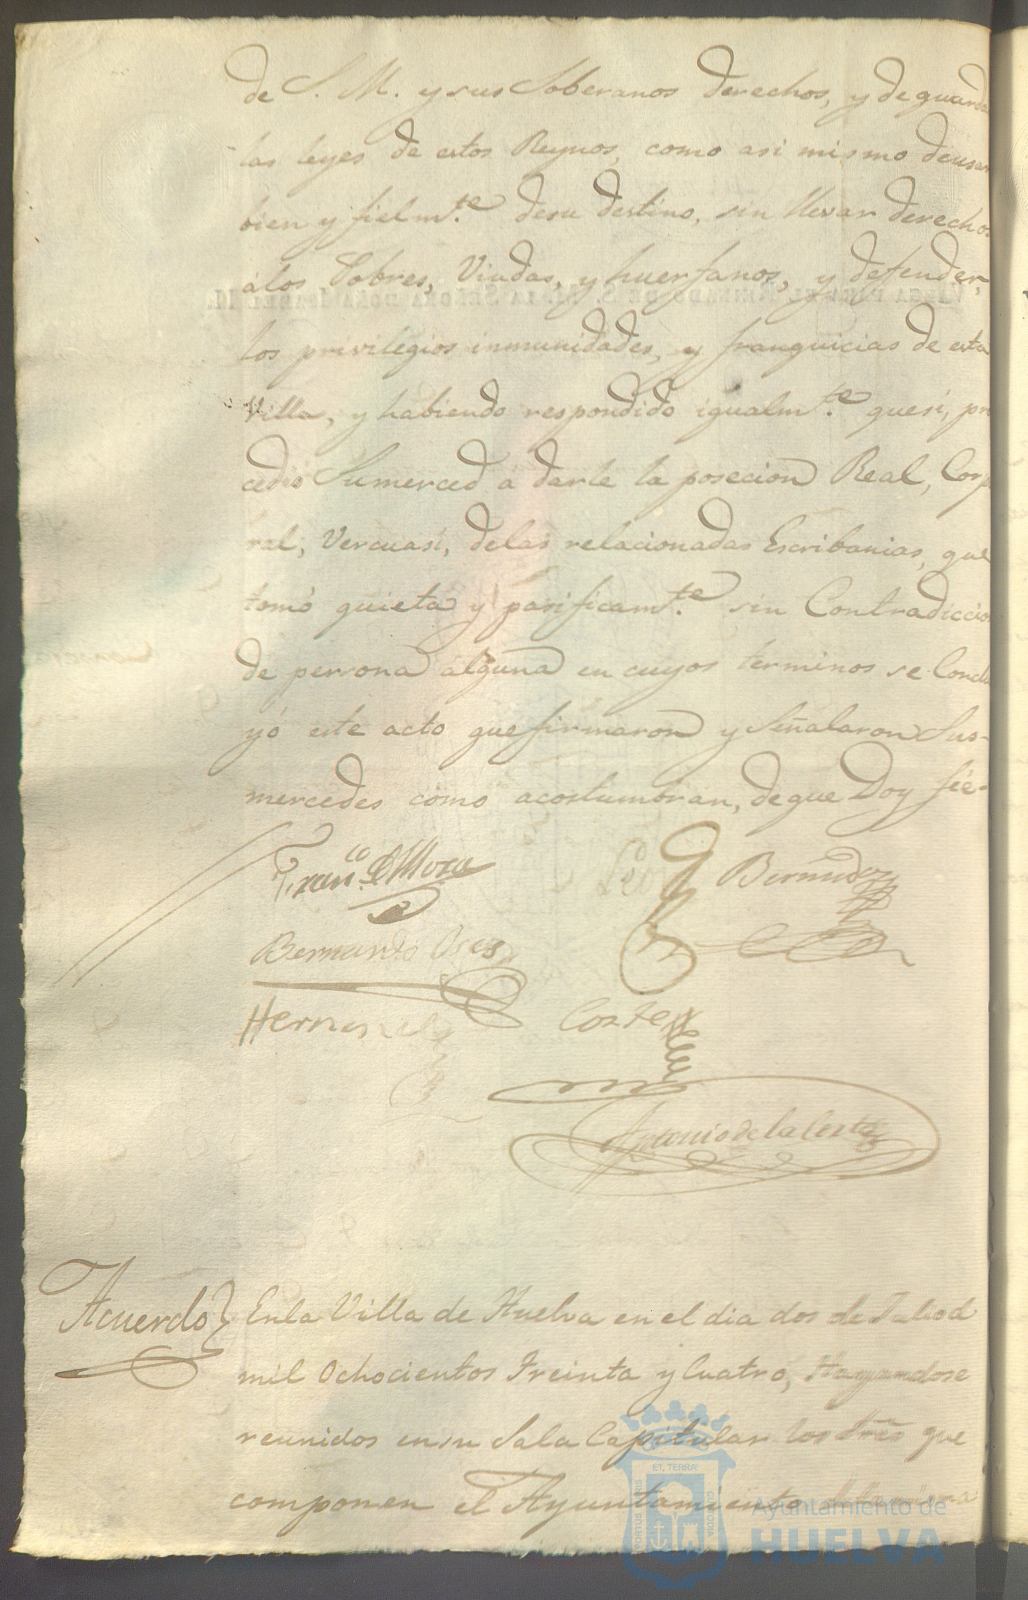 de S. M. y sus Soberanos derechos, y de guarda
las leyes de estos Reynos, como asi mismo deusar
bien y fielmte. desu destino, sin llevar derechos
álos Pobres, Viudas, y huerfanos, y defender,
VALGA PARA EL REINADO DE S. M. LA SEÑORA DOÑA ISABEL II.
los privilegios inmunidades, y franquicias de esta
Villa, y habiendo respondido igualmte. quesi, pro
cedio Sumerced á darle la posecion Real, Corpo
ral, Vercuasi, delas relacionadas Escribanias, que
tomó quieta y pasificamte. sin Contradiccion
de persona alguna en cuyos terminos se Conclu
yó este acto que firmaron y Señalaron Sus-
mercedes como acostumbran, de que Doy fée-
Franco. de Mora
Leon
Bermudez
Bernardo
Cortes
Antonio de la Corte
Acuerdo} Enla Villa de Huelva en el dia dos de Julio d
mil Ochocientos Treinta y Cuatro, Hayandose
reunidos en su Sala Capitular los Sres. que
componen el Ayuntamiento
ET TERRAE
Ayuntamiento de
HUELVA